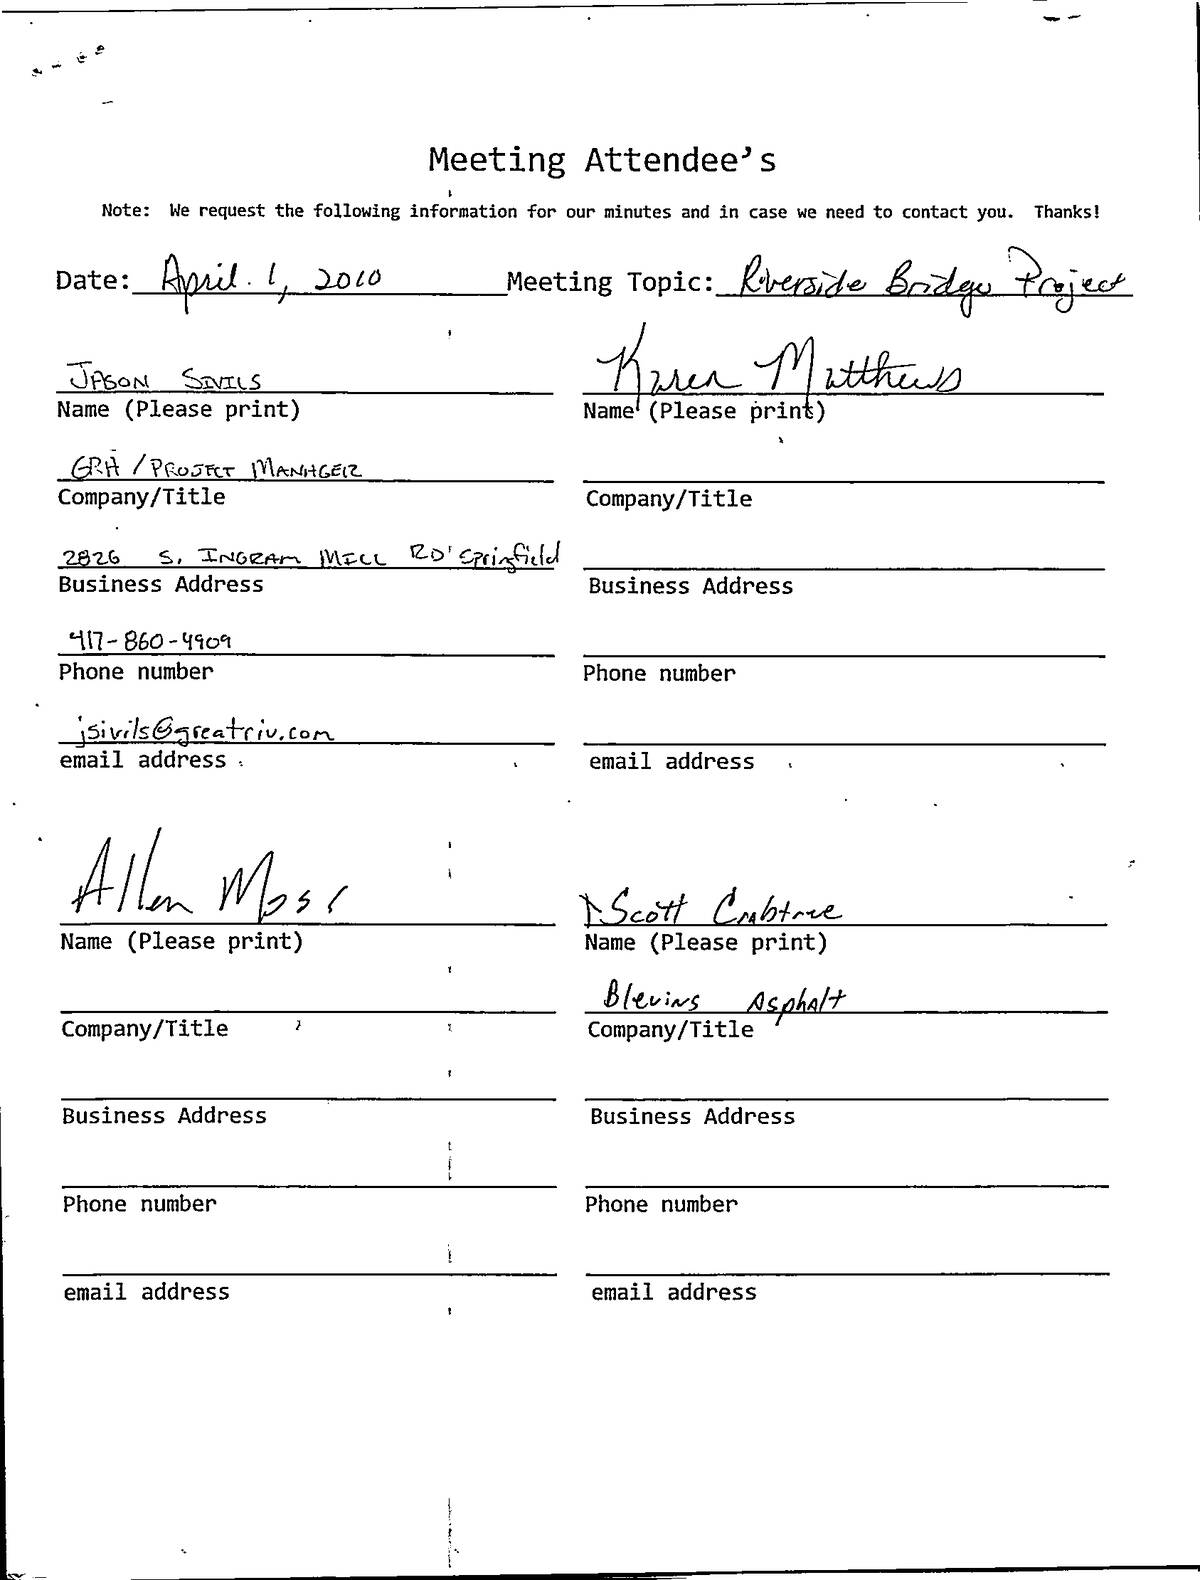 Meeting Attendee's
Note: We request the following information for our minutes and in case we need to contact you. Thanks!
Date: April 1, 2010 Meeting Topic: Riverside Bridge Project
JASON SIVILS
Name (Please print)
GRH / PROJECT MANAGER
Company/Title
2826 S. INGRAM MILL RD Springfield
Business Address
417-860-4909
Phone number
jsivils@greatriv.com
email address
Karen Matthews
Name (Please print)
Company/Title
Business Address
Phone number
email address
Allen Moss
Name (Please print)
Company/Title
Business Address
Phone number
email address
Scott Crabtree
Name (Please print)
Blevins Asphalt
Company/Title
Business Address
Phone number
email address